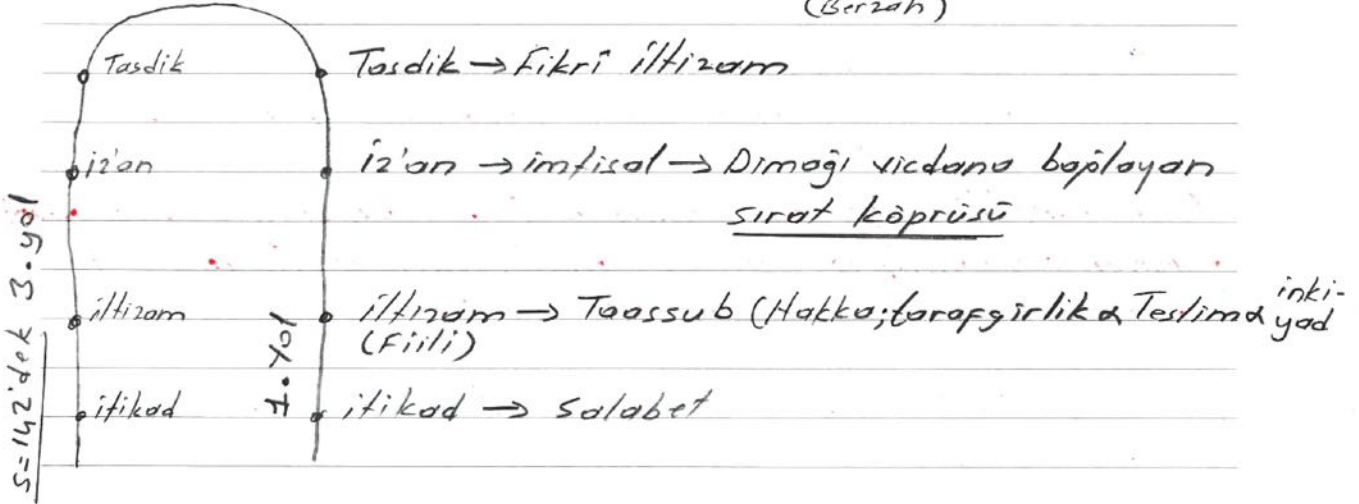 (Berzah)
Tasdik
Tasdik → Fikrî iltizam
iz'an
iz'an → imtisal → Dimağı vicdana bağlayan
sırat köprüsü
iltizam
iltizam → Taassub (Hakka; tarafgirlik & Teslim & inki-
yad
(Fiili)
itikad
itikad → Salabet
1. yol
S=142'dek 3. yol